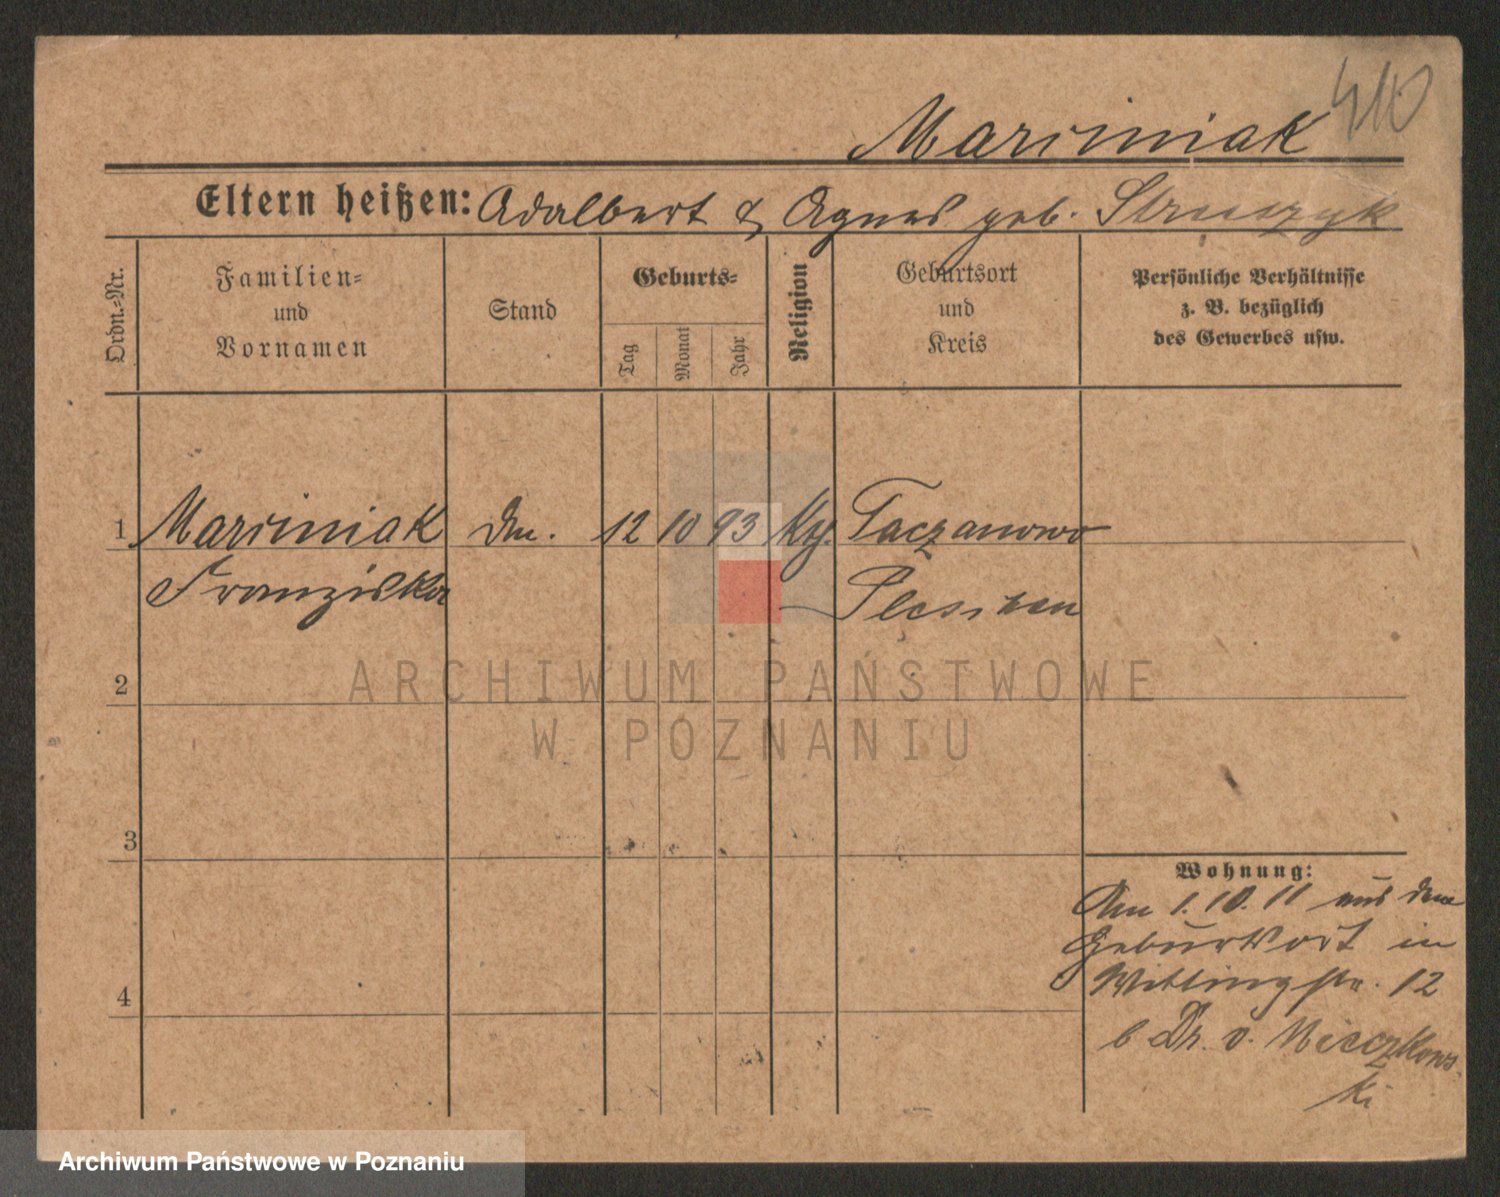 410
Marciniak
Eltern heißen: Adalbert & Agnes geb.
Ordn.-Nr.
Familien-
und
Vornamen
Stand
Geburts-
Tag
Monat
Jahr
Religion
Geburtsort
und
Kreis
Persönliche Verhältnisse
z. B. bezüglich
des Gewerbes usw.
1 Marciniak 12 10 93 Taczanowo
Franziska Pleschen
2
ARCHIWUM PAŃSTWOWE
W POZNANIU
3
4
Wohnung:
Am 1. 10. 11 aus dem
Geburtsort in
Wittingstr. 12
b Dr. v. Mieczkows-
ki
Archiwum Państwowe w Poznaniu